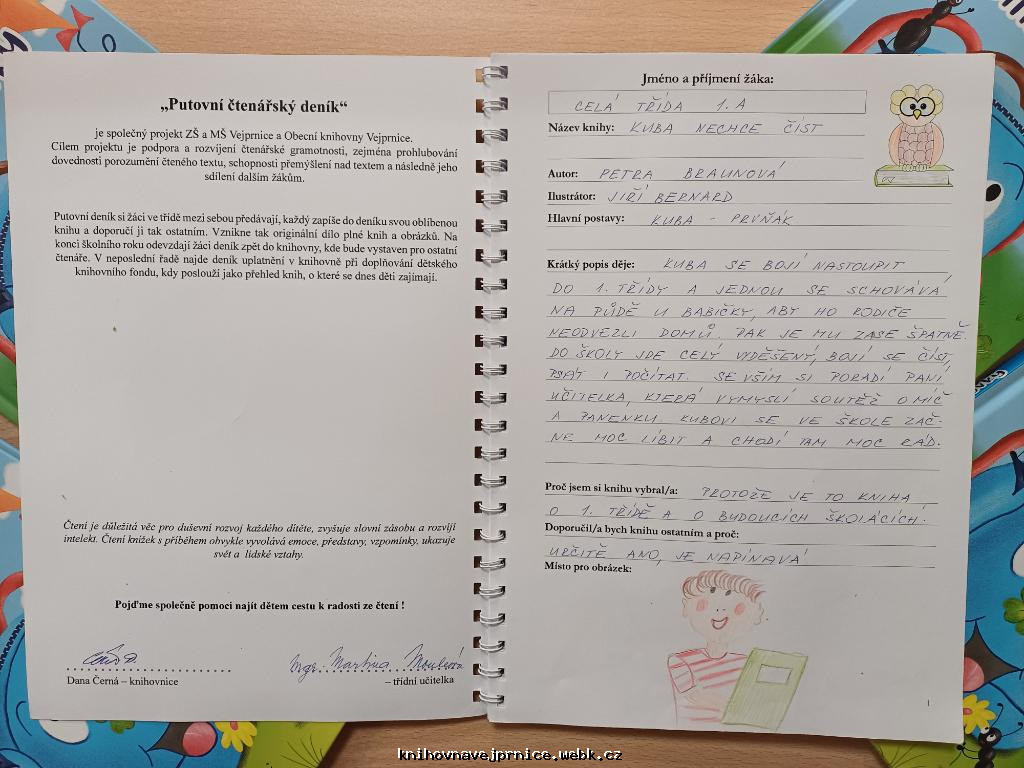 „Putovní čtenářský deník“
je společný projekt ZŠ a MŠ Vejprnice a Obecní knihovny Vejprnice.
Cílem projektu je podpora a rozvíjení čtenářské gramotnosti, zejména prohlubování
dovednosti porozumění čteného textu, schopnosti přemýšlení nad textem a následně jeho
sdílení dalším žákům.
Putovní deník si žáci ve třídě mezi sebou předávají, každý zapíše do deníku svou oblíbenou
knihu a doporučí ji tak ostatním. Vznikne tak originální dílo plné knih a obrázků. Na
konci školního roku odevzdají žáci deník zpět do knihovny, kde bude vystaven pro ostatní
čtenáře. V neposlední řadě najde deník uplatnění v knihovně při doplňování dětského
knihovního fondu, kdy poslouží jako přehled knih, o které se dnes děti zajímají.
Čtení je důležitá věc pro duševní rozvoj každého dítěte, zvyšuje slovní zásobu a rozvíjí
intelekt. Čtení knížek s příběhem obvykle vyvolává emoce, představy, vzpomínky, ukazuje
svět a lidské vztahy.
Pojďme společně pomoci najít dětem cestu k radosti ze čtení !
Mgr. Martina
Dana Černá – knihovnice
– třídní učitelka
Jméno a příjmení žáka:
CELÁ TŘÍDA 1.A
Název knihy: KUBA NECHCE ČÍST
Autor: PETRA BRAUNOVÁ
Ilustrátor: JIŘÍ BERNARD
Hlavní postavy: KUBA - PRVŇÁK
Krátký popis děje: KUBA SE BOJÍ NASTOUPIT
DO 1. TŘÍDY A JEDNOU SE SCHOVÁVÁ
NA PŮDĚ U BABIČKY, ABY HO RODIČE
NEODVEZLI DOMŮ. PAK JE MU ZASE ŠPATNĚ.
DO ŠKOLY JDE CELÝ VYDĚŠENÝ, BOJÍ SE ČÍST,
PSÁT I POČÍTAT. SE VŠÍM SI PORADÍ PANÍ
UČITELKA, KTERÁ VYMYSLÍ SOUTĚŽ O MÍČ
A PANENKU. KUBOVI SE VE ŠKOLE ZAČ-
NE MOC LÍBIT A CHODÍ TAM MOC RÁD.
Proč jsem si knihu vybral/a: PROTOŽE JE TO KNIHA
O 1. TŘÍDĚ A O BUDOUCÍCH ŠKOLÁCÍCH.
Doporučil/a bych knihu ostatním a proč:
URČITĚ ANO, JE NAPÍNAVÁ
Místo pro obrázek:
1
knihovnavejprnice.webk.cz